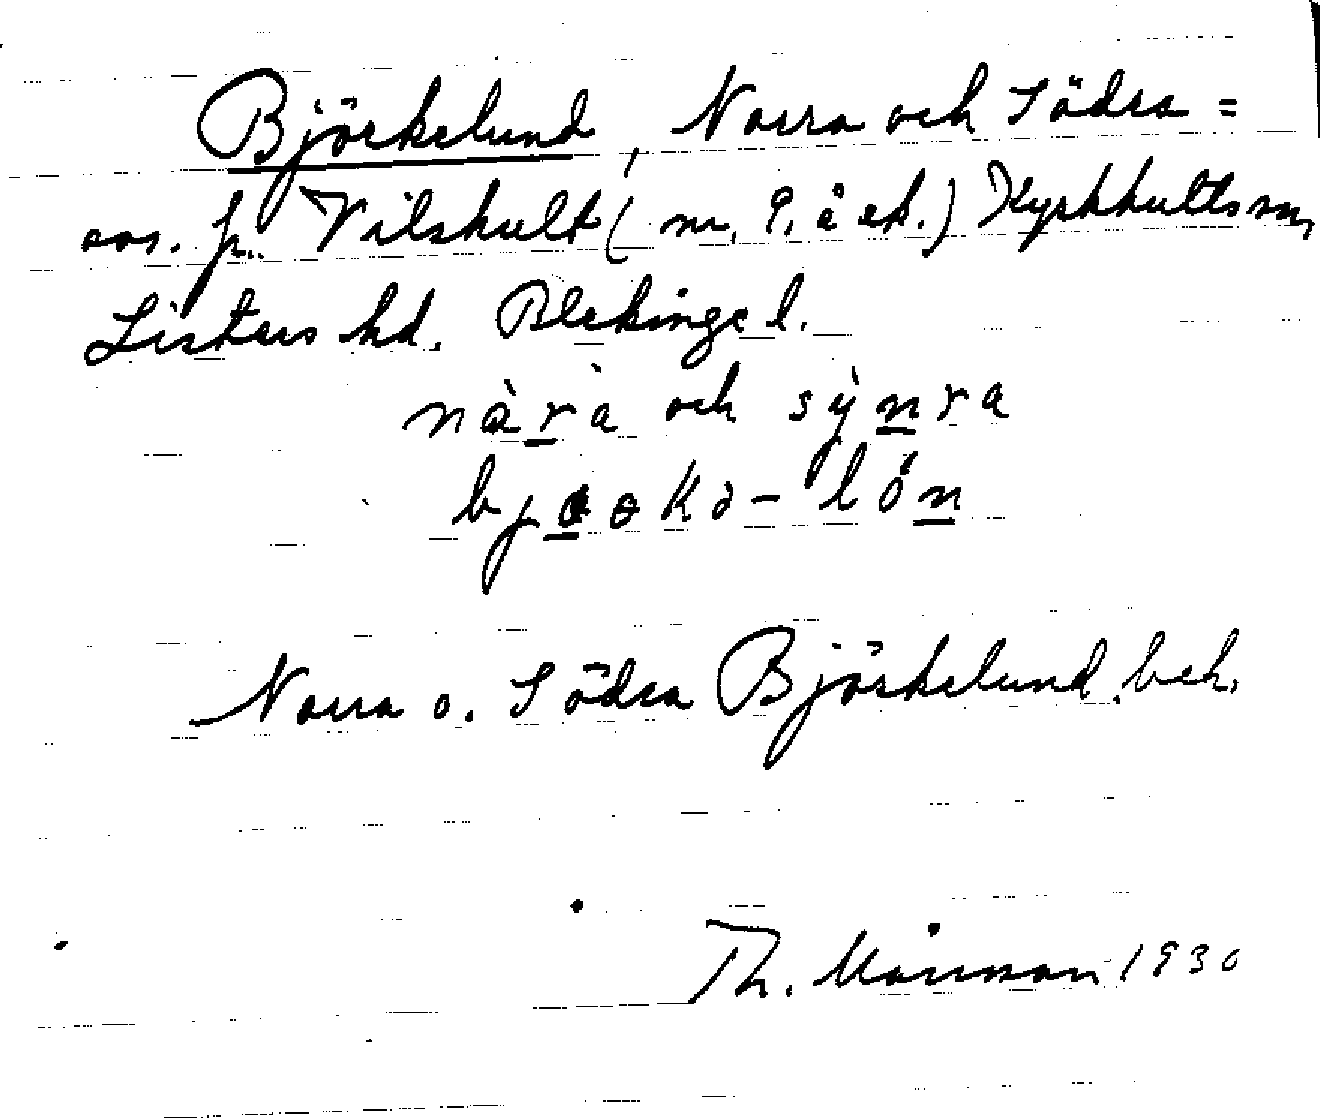 Björkelund, Norra och Södra =
avs. fr. Vilshult (nr. 9. å ek.) Kyrkhults sn,
Listers hd. Blekinge l.
nàrà och sỳnra
-lón
Norra o. Södra Björkelund. beh.
Th. Mårman 1930